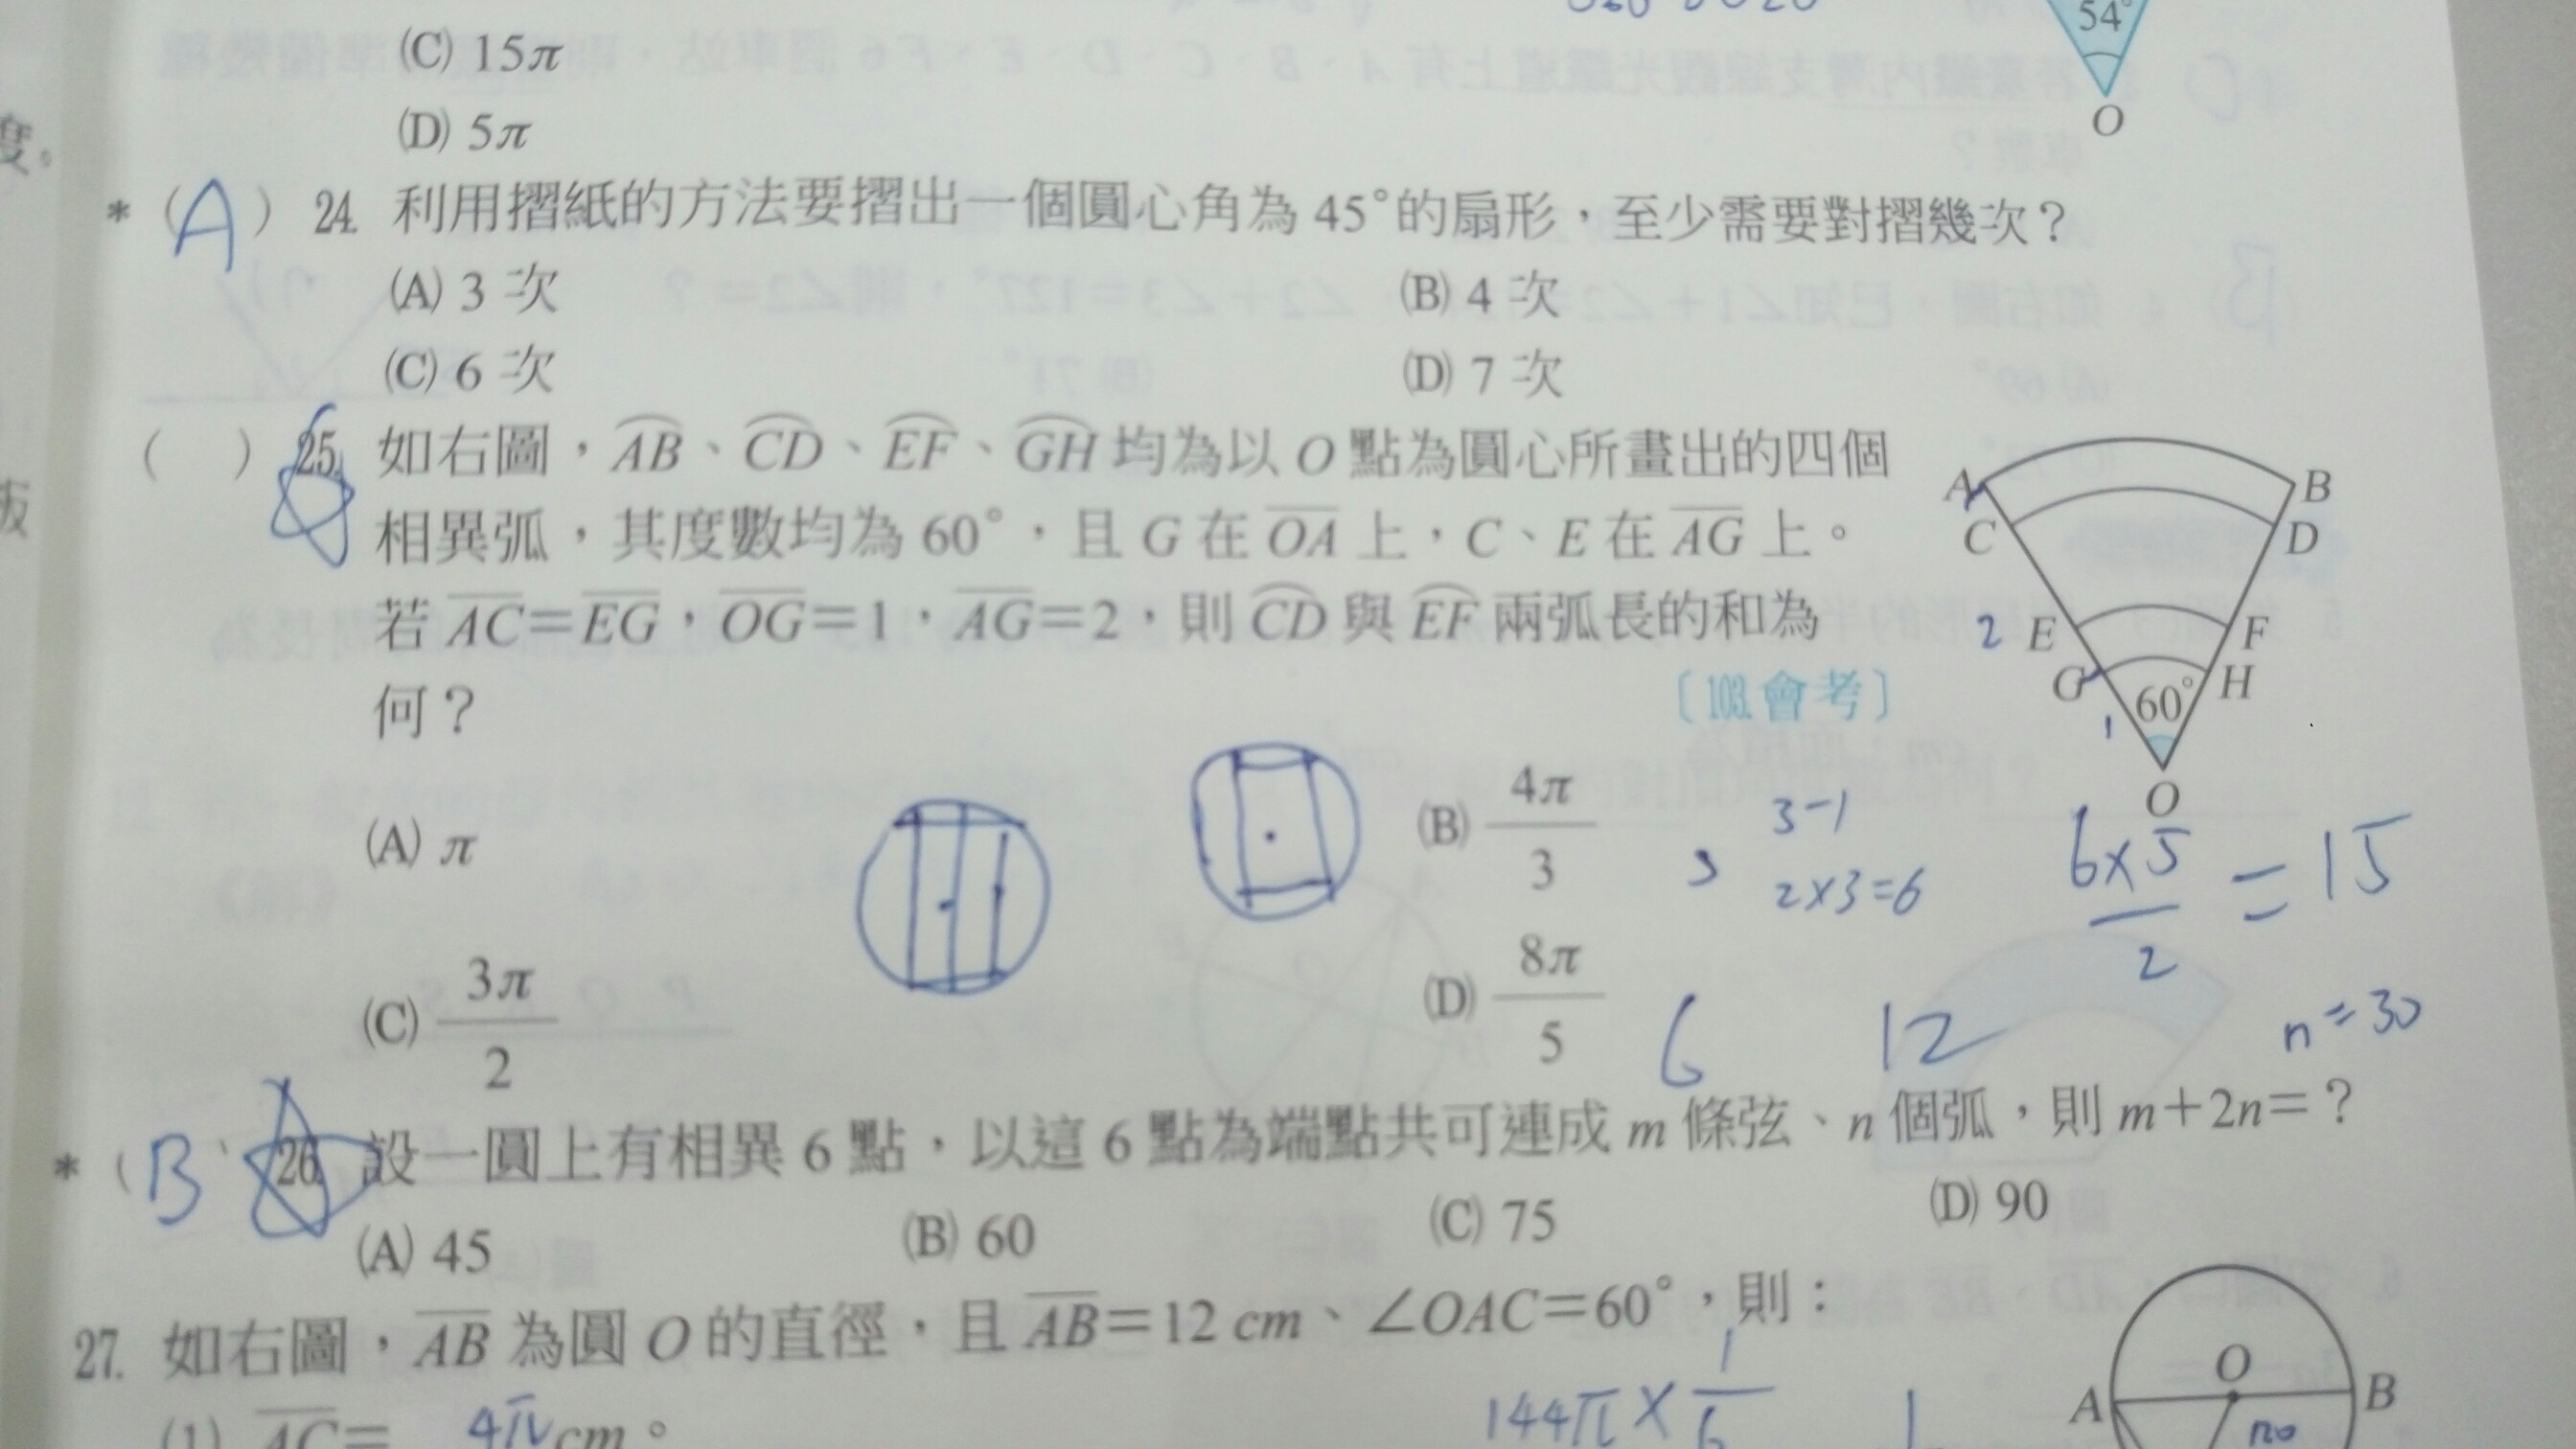 54°
(C) 15π
(D) 5π
O
度。
* (A) 24. 利用摺紙的方法要摺出一個圓心角為 45°的扇形，至少需要對摺幾次？
(A) 3 次 (B) 4 次
(C) 6 次 (D) 7 次
( ) 25. 如右圖，AB、CD、EF、GH 均為以 O 點為圓心所畫出的四個
相異弧，其度數均為 60°，且 G 在 OA 上，C、E 在 AG 上。
若 AC=EG，OG=1，AG=2，則 CD 與 EF 兩弧長的和為
何？ 〔103.會考〕
A B
C D
2 E F
G 60° H
1
O
(A) π (B) 4π/3
3-1
2×3=6
6×5/2=15
(C) 3π/2 (D) 8π/5
6 12 n=30
* (B) 26. 設一圓上有相異 6 點，以這 6 點為端點共可連成 m 條弦、n 個弧，則 m+2n=？
(A) 45 (B) 60 (C) 75 (D) 90
27. 如右圖，AB 為圓 O 的直徑，且 AB=12 cm、∠OAC=60°，則：
(1) AC= 4π cm。
144π×1/6
O
A B
120